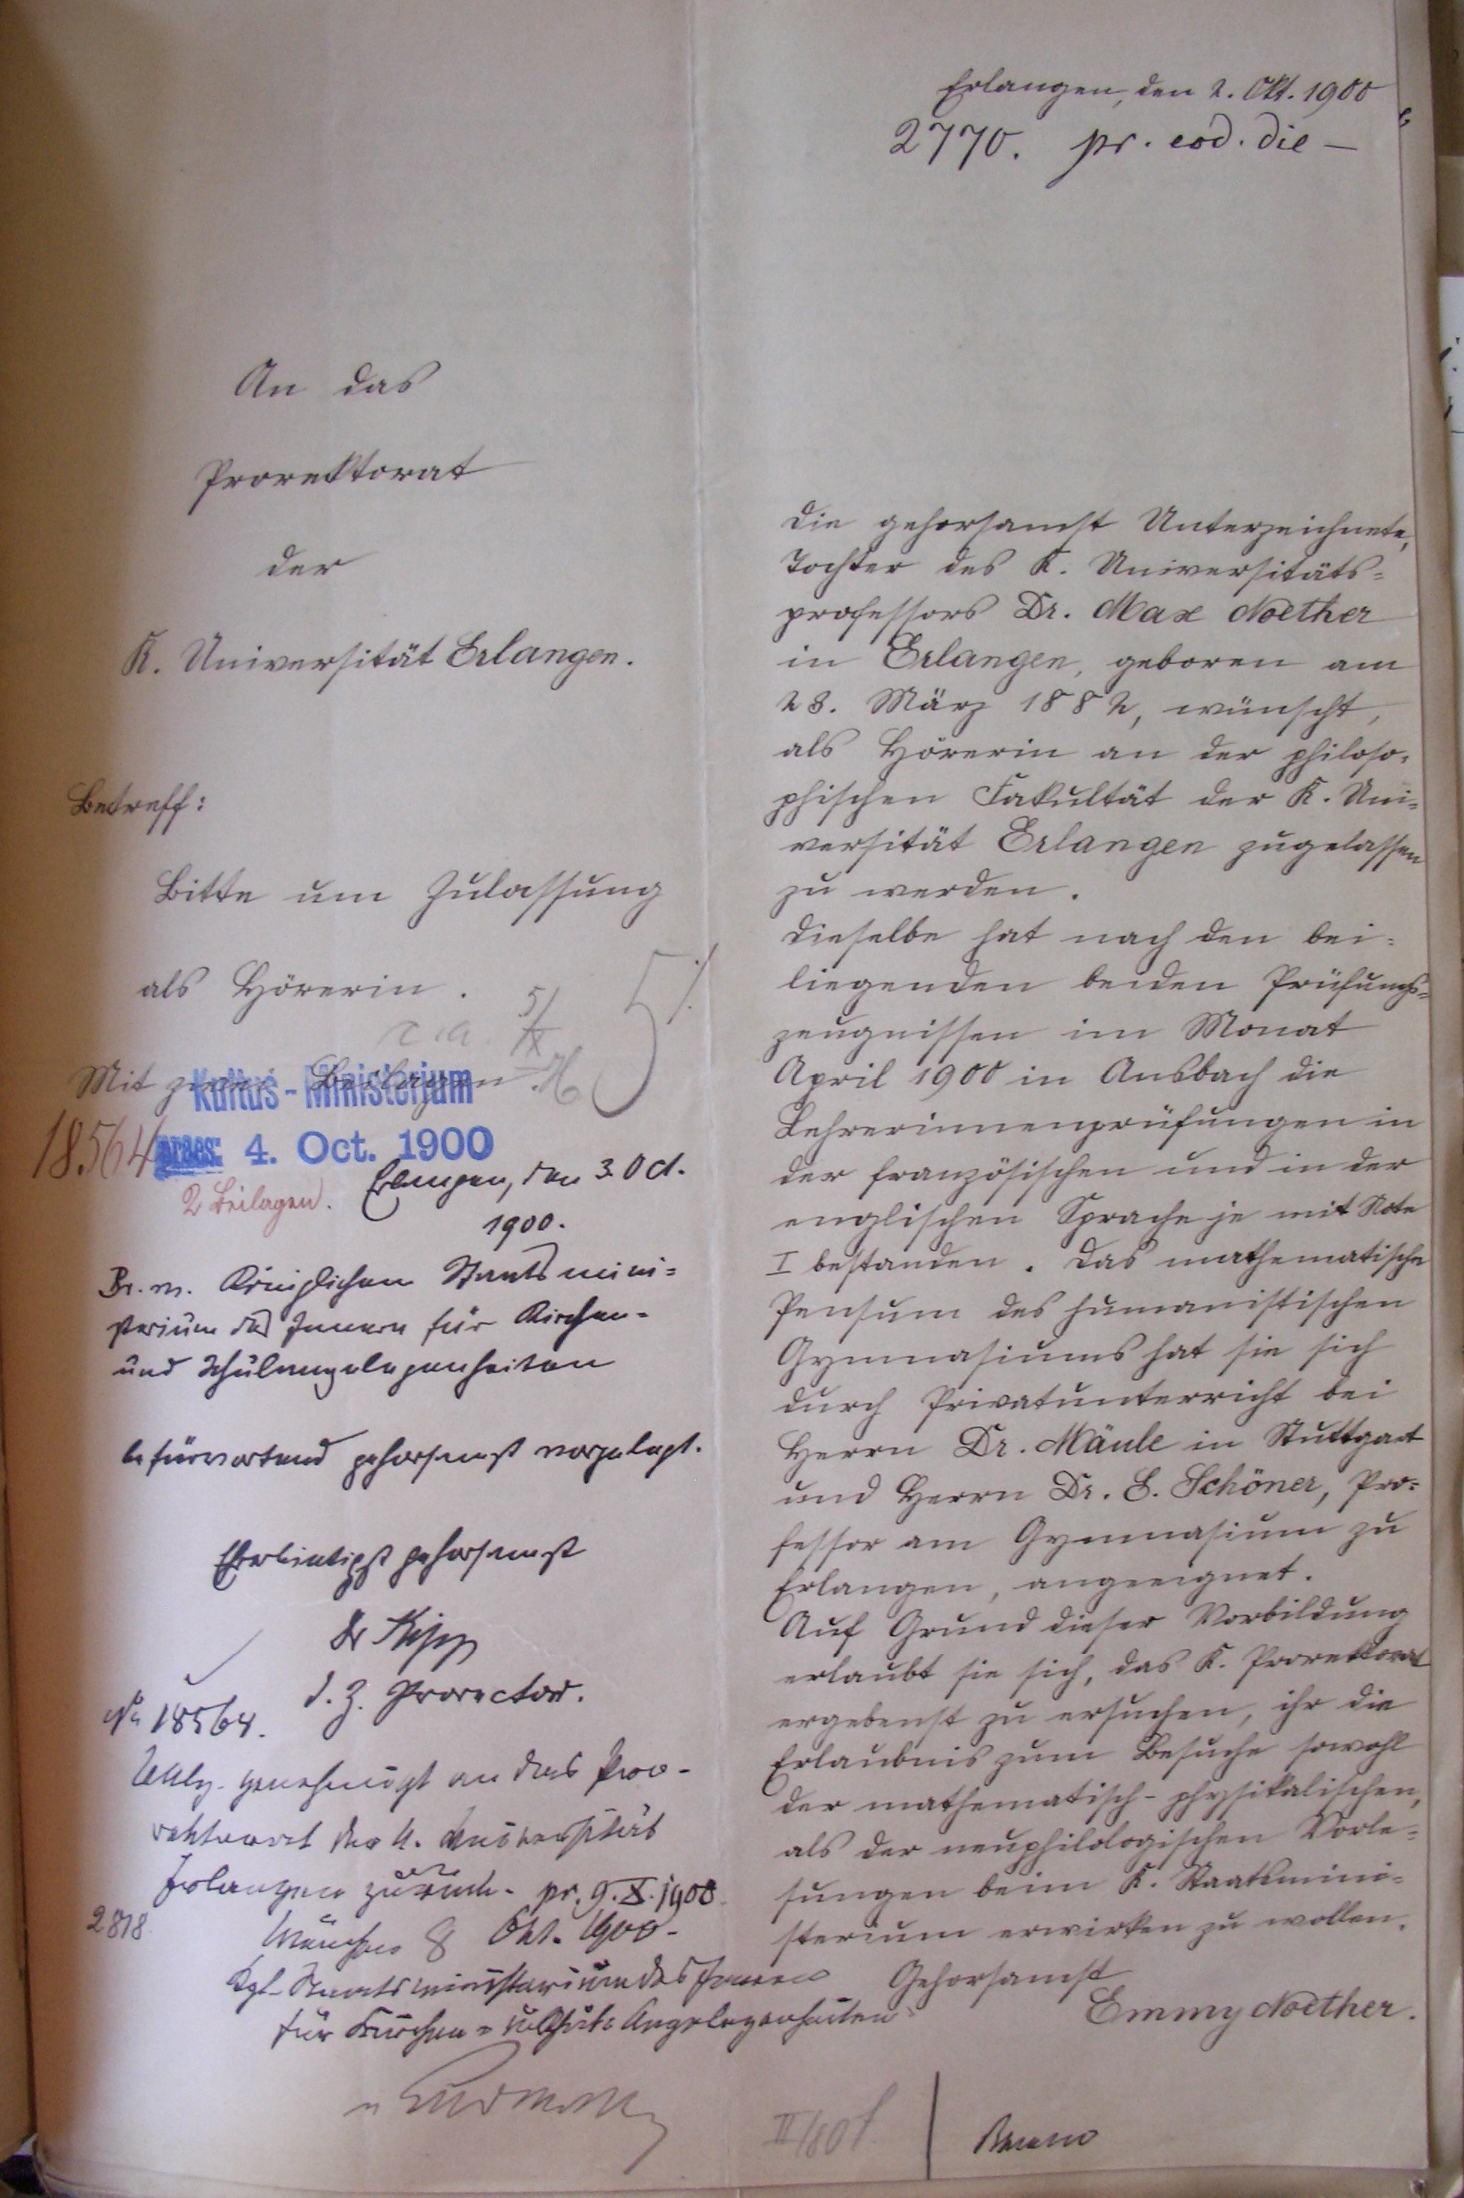 Erlangen, den 2. Okt. 1900
2770. pr. eod. die —
An das
Prorektorat
der
K. Universität Erlangen.
Betreff:
Bitte um Zulassung
als Hörerin.
Mit zwei Beilagen.
Kultus-Ministerium
18564 praes: 4. Oct. 1900
2 Beilagen.
Erlangen, den 3. Oct.
1900.
Br. m. Königlichen Staatsmini-
sterium des Innern für Kirchen-
und Schulangelegenheiten
befürwortend gehorsamst vorgelegt.
Ehrerbietigst gehorsamst
Dr Kipp
d. Z. Prorector.
No 18564.
genehmigt an das Pro-
rektorat der K. Universität
Erlangen zurück. pr. 9. X. 1900
2818
München 8 Okt. 1900.
Kgl. Staatsministerium des Innern
für Kirchen- u. Schul-Angelegenheiten
Die gehorsamst Unterzeichnete,
Tochter des K. Universitäts-
professors Dr. Max Noether
in Erlangen, geboren am
23. März 1882, wünscht,
als Hörerin an der philoso-
phischen Fakultät der K. Uni-
versität Erlangen zugelassen
zu werden.
Dieselbe hat nach den bei-
liegenden beiden Prüfungs-
zeugnissen im Monat
April 1900 in Ansbach die
Lehrerinnenprüfungen in
der französischen und in der
englischen Sprache je mit Note
I bestanden. Das mathematische
Pensum des humanistischen
Gymnasiums hat sie sich
durch Privatunterricht bei
Herrn Dr. Mäule in Stuttgart
und Herrn Dr. E. Schöner, Pro-
fessor am Gymnasium zu
Erlangen, angeeignet.
Auf Grund dieser Vorbildung
erlaubt sie sich, das K. Prorektorat
ergebenst zu ersuchen, ihr die
Erlaubnis zum Besuche sowohl
der mathematisch-physikalischen,
als der neuphilologischen Vorle-
sungen beim K. Staatsmini-
sterium erwirken zu wollen.
Gehorsamst
Emmy Noether.